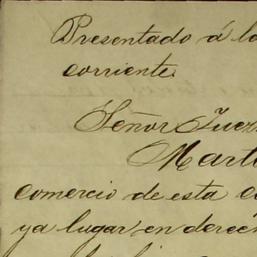 Presentado á lo
corriente.
Señor Juez
Mart
comercio de esta c
ya lugar, en derec